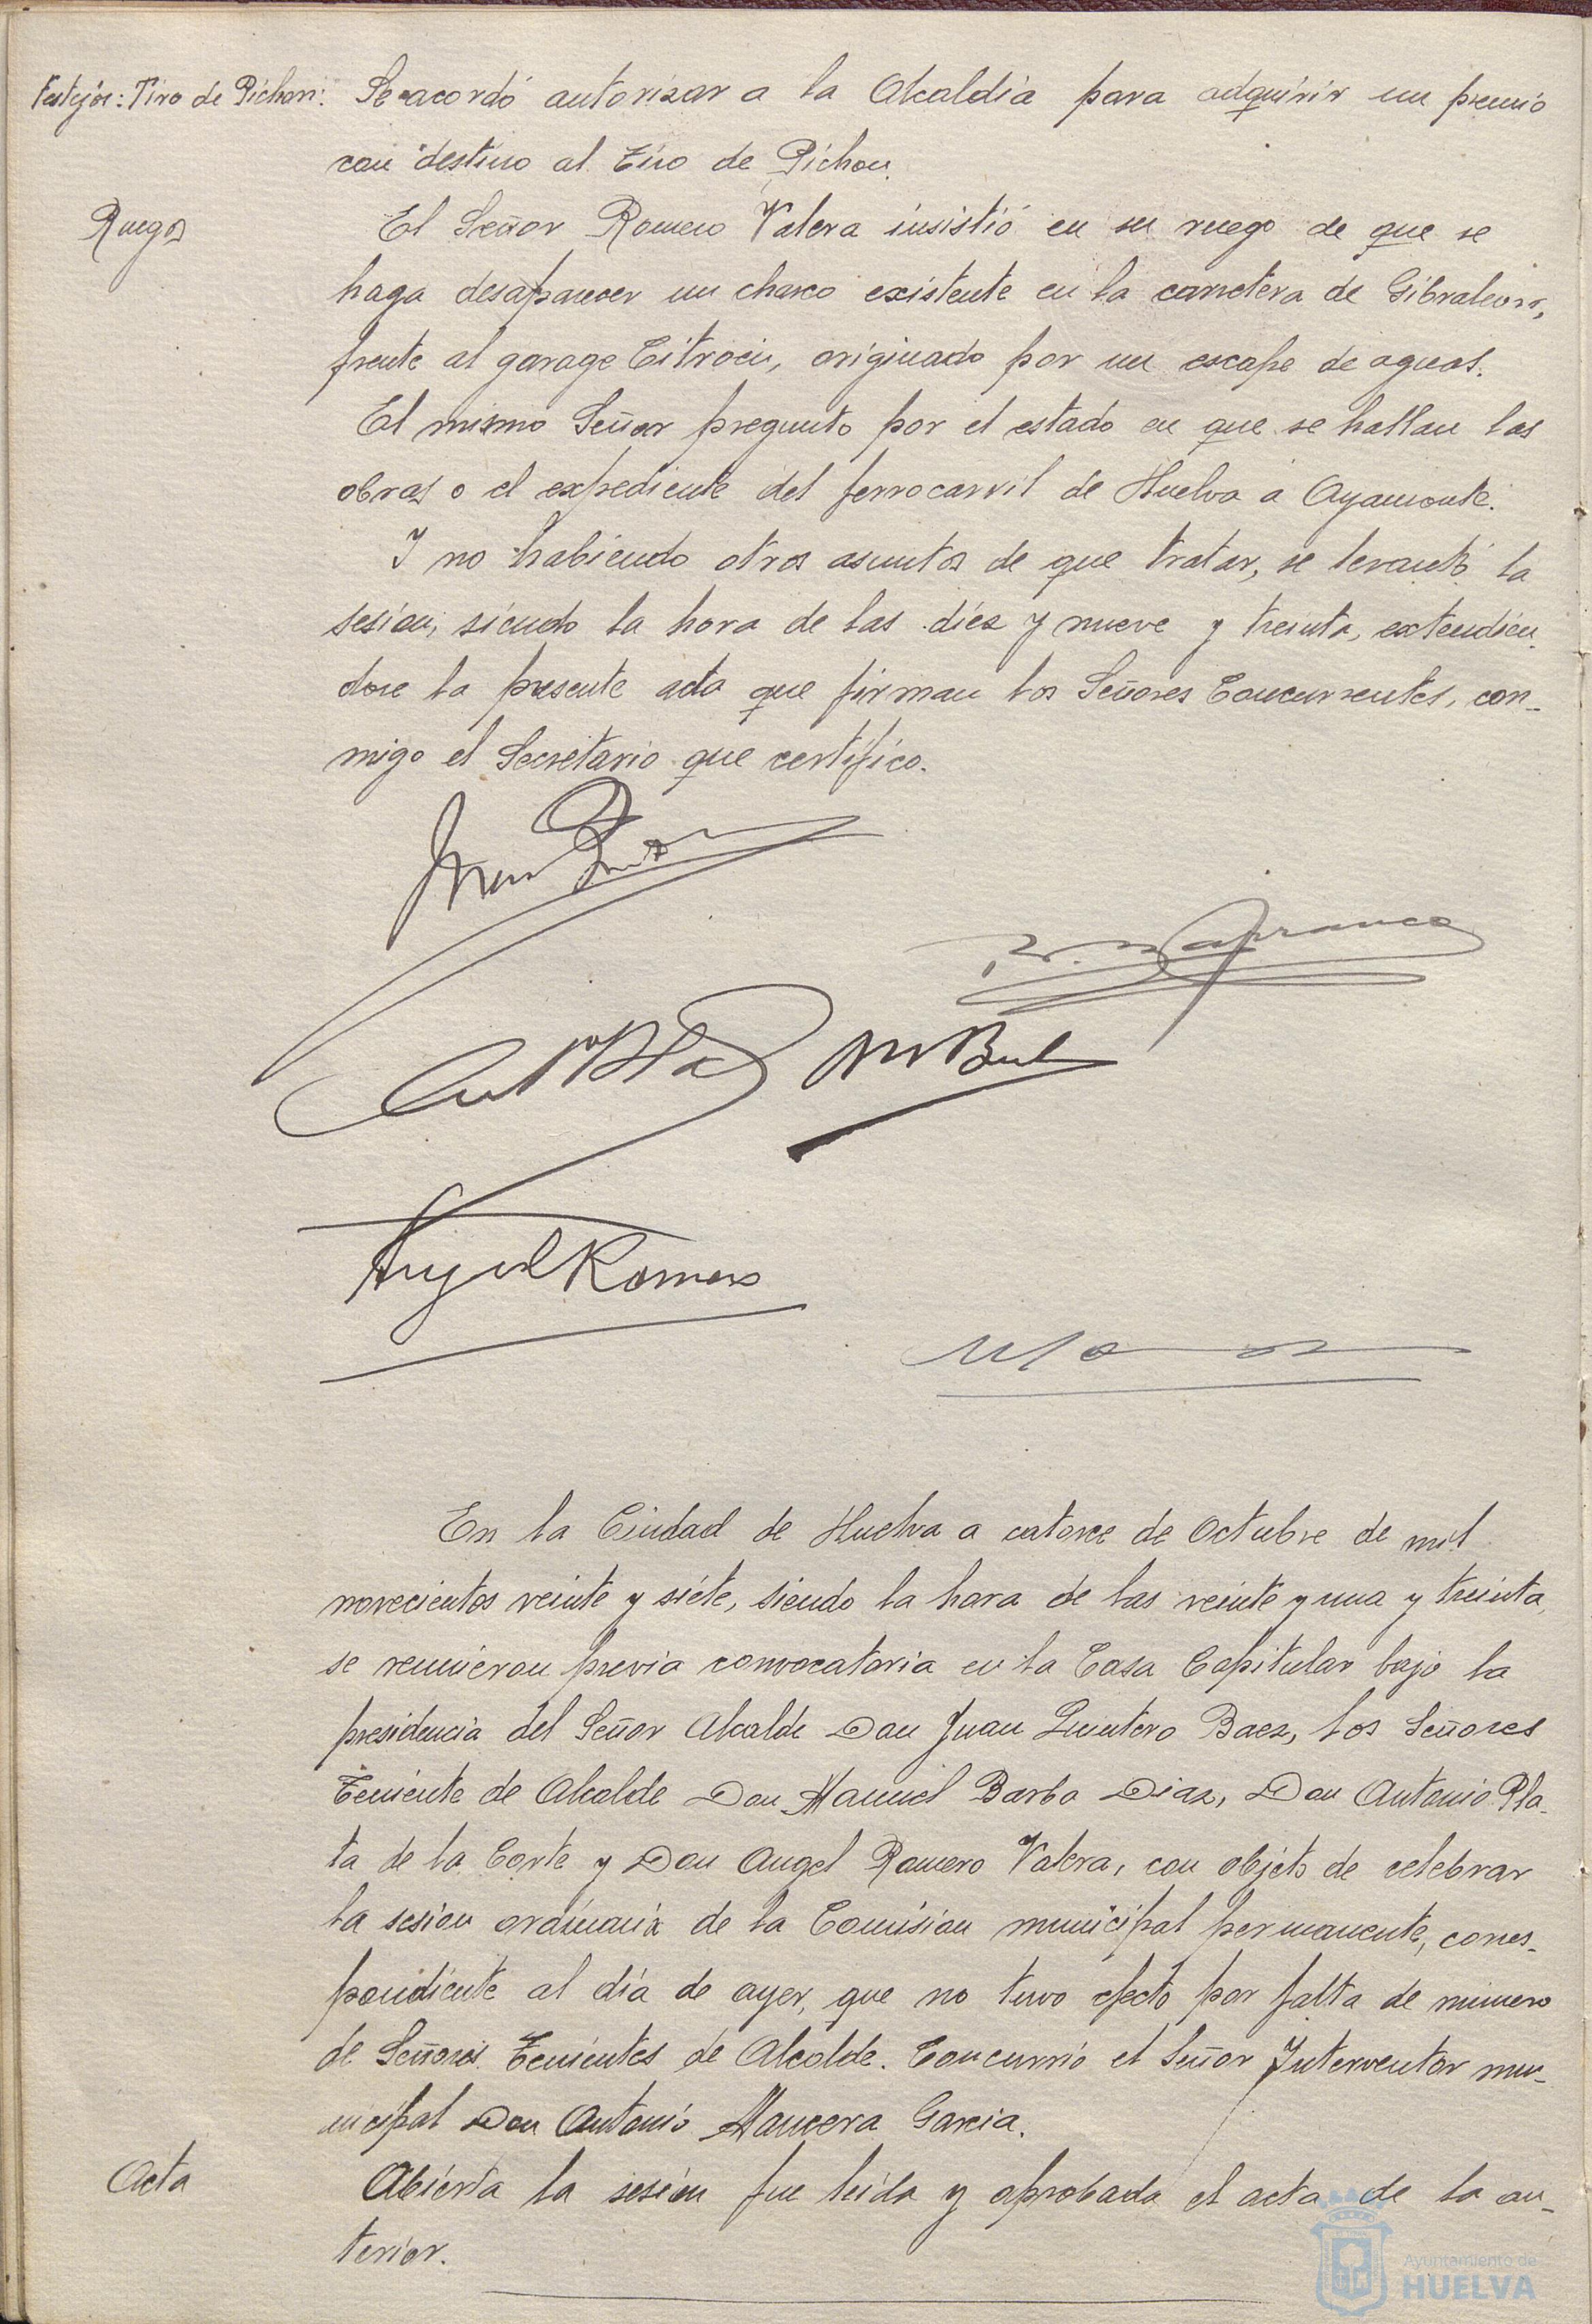 Festejos: Tiro de Pichon: Se acordó autorizar a la Alcaldia para adquirir un premio
con destino al Tiro de Pichon.
Ruegos El Señor Romero Valera insistió en su ruego de que se
haga desaparecer un charco existente en la carretera de Gibraleon,
frente al garage Citroen, originado por un escape de aguas.
El mismo Señor pregunto por el estado en que se hallan las
obras o el expediente del ferrocarril de Huelva a Ayamonte.
Y no habiendo otros asuntos de que tratar, se levantó la
sesion, siendo la hora de las diez y nueve y treinta, extendien-
dose la presente acta que firman los Señores Concurrentes, con-
migo el Secretario que certifico.
Angel Romero
En la Ciudad de Huelva a catorce de Octubre de mil
novecientos veinte y siete, siendo la hora de las veinte y una y treinta,
se reunieron previa convocatoria en la Casa Capitular bajo la
presidencia del Señor Alcalde Don Juan Quintero Baez, los Señores
Teniente de Alcalde Don Manuel Barba Diaz, Don Antonio Pla-
ta de la Corte y Don Angel Romero Valera, con objeto de celebrar
la sesion ordinaria de la Comision municipal permanente, corres-
pondiente al día de ayer, que no tuvo efecto por falta de numero
de Señores Tenientes de Alcalde. Concurrió el Señor Interventor mu-
nicipal Don Antonio Mancera Garcia.
Acta Abierta la sesion fue leida y aprobada el acta de la an-
terior.
Ayuntamiento de
HUELVA